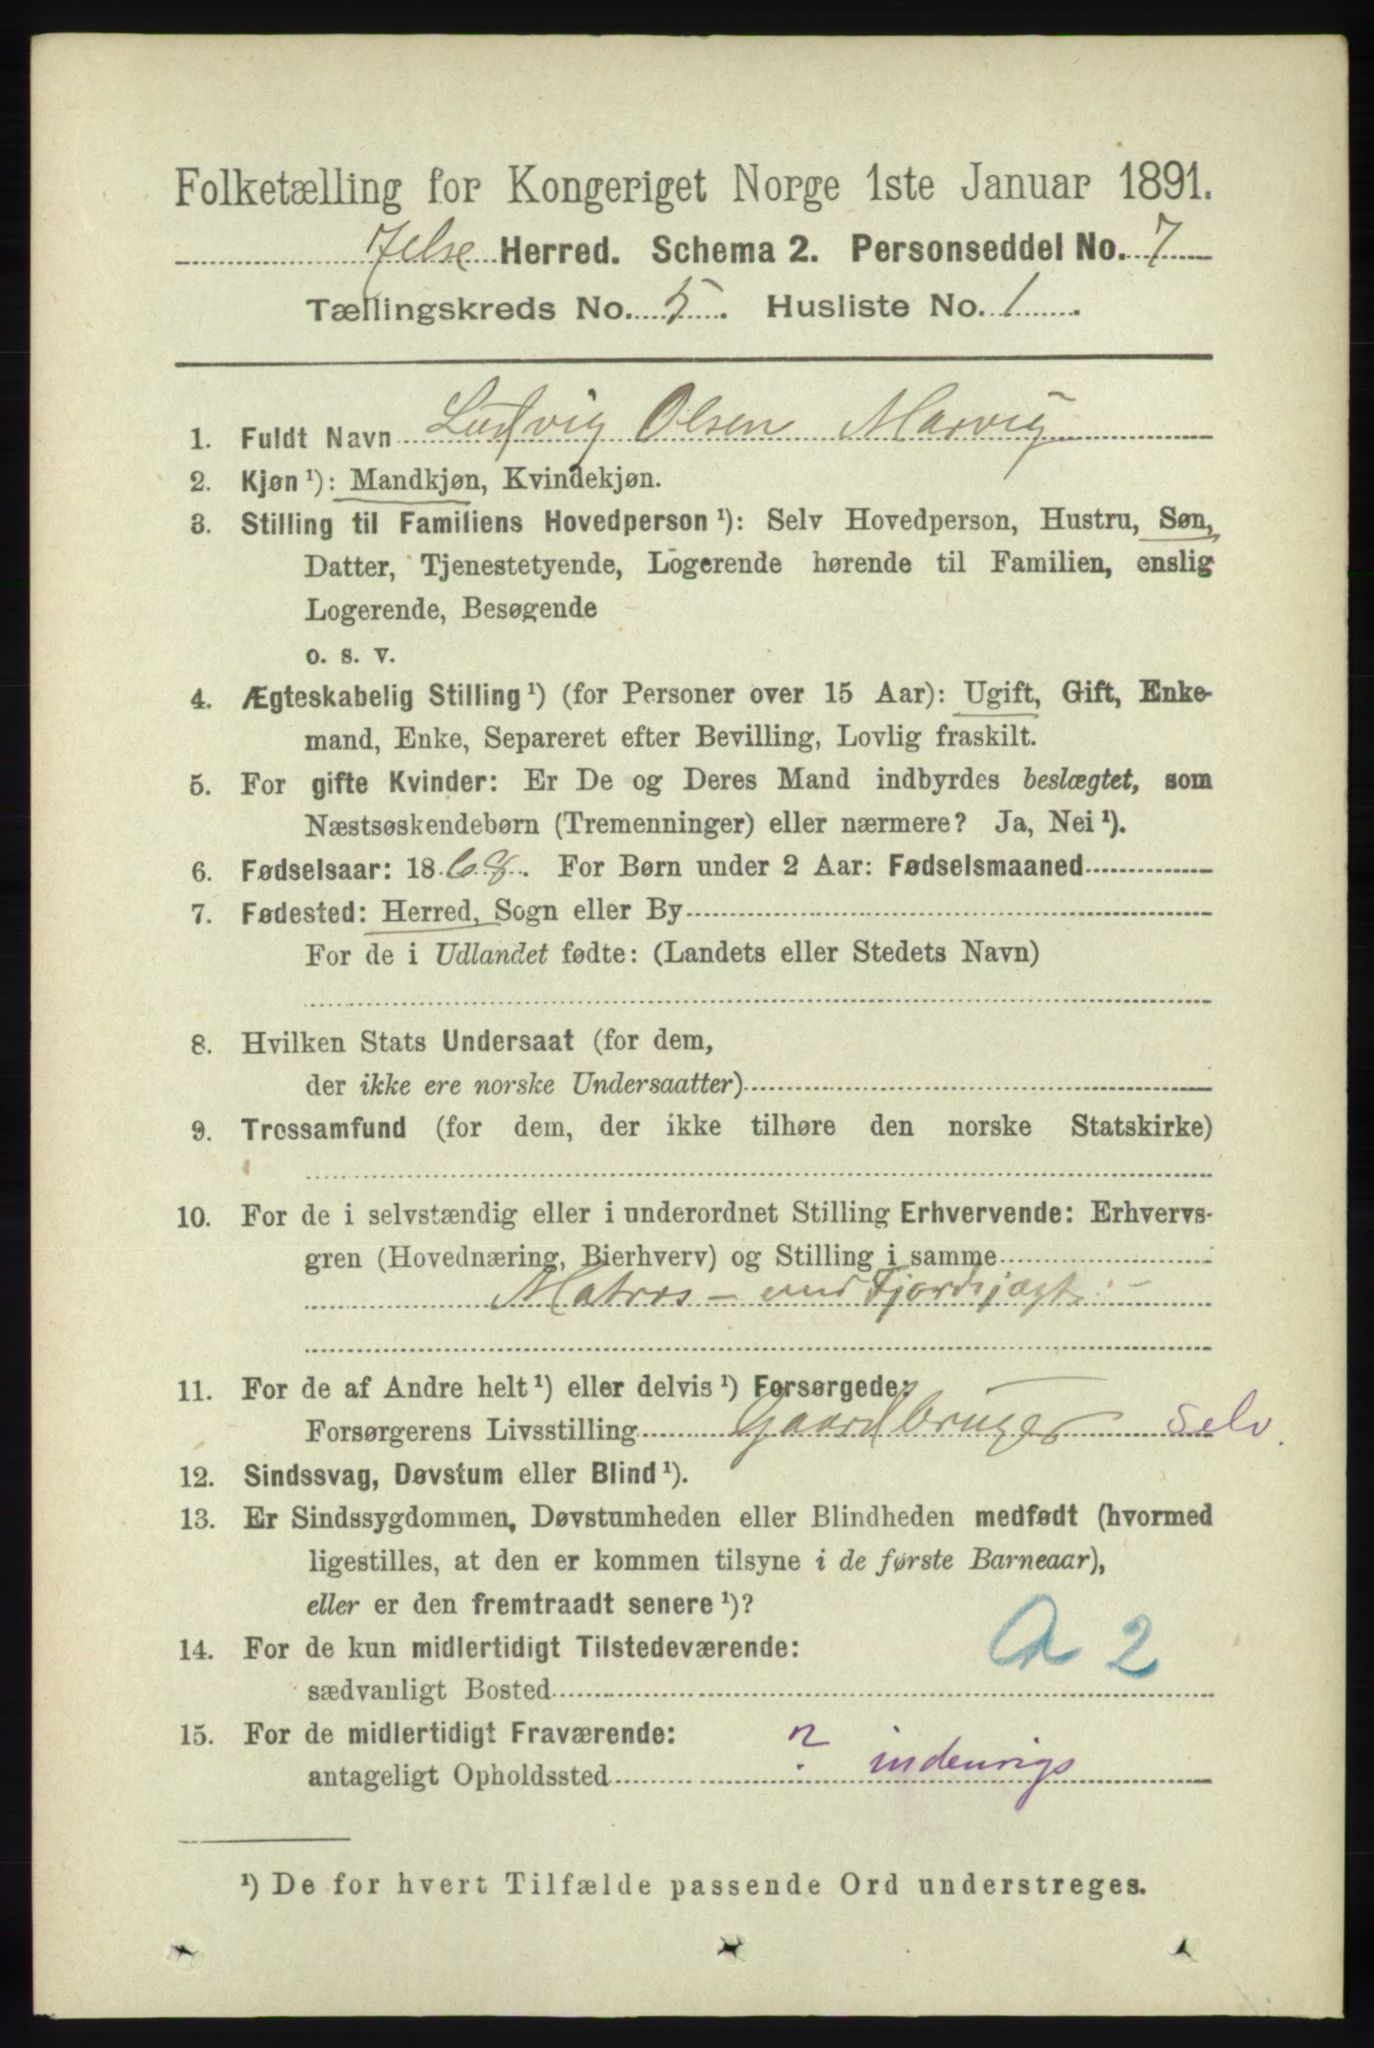 Folketælling for Kongeriget Norge 1ste Januar 1891.
Jelse Herred. Schema 2. Personseddel No. 7
Tællingskreds No. 5. Husliste No. 1.
1. Fuldt Navn Ludvig Olsen Marvig
2. Kjøn ¹): Mandkjøn, Kvindekjøn.
3. Stilling til Familiens Hovedperson ¹): Selv Hovedperson, Hustru, Søn,
Datter, Tjenestetyende, Logerende hørende til Familien, enslig
Logerende, Besøgende
o. s. v.
4. Ægteskabelig Stilling ¹) (for Personer over 15 Aar): Ugift, Gift, Enke-
mand, Enke, Separeret efter Bevilling, Lovlig fraskilt.
5. For gifte Kvinder: Er De og Deres Mand indbyrdes beslægtet, som
Næstsøskendebørn (Tremenninger) eller nærmere? Ja, Nei ¹).
6. Fødselsaar: 1868. For Børn under 2 Aar: Fødselsmaaned
7. Fødested: Herred, Sogn eller By
For de i Udlandet fødte: (Landets eller Stedets Navn)
8. Hvilken Stats Undersaat (for dem,
der ikke ere norske Undersaatter)
9. Trossamfund (for dem, der ikke tilhøre den norske Statskirke)
10. For de i selvstændig eller i underordnet Stilling Erhvervende: Erhvervs-
gren (Hovednæring, Bierhverv) og Stilling i samme
Matros – Fjordsjagt. –
11. For de af Andre helt ¹) eller delvis ¹) Forsørgede:
Forsørgerens Livsstilling Gaardbruger Selv.
12. Sindssvag, Døvstum eller Blind ¹).
13. Er Sindssygdommen, Døvstumheden eller Blindheden medfødt (hvormed
ligestilles, at den er kommen tilsyne i de første Barneaar),
eller er den fremtraadt senere ¹)?
14. For de kun midlertidigt Tilstedeværende: a 2
sædvanligt Bosted
15. For de midlertidigt Fraværende:
antageligt Opholdssted ? indenrigs
¹) De for hvert Tilfælde passende Ord understreges.